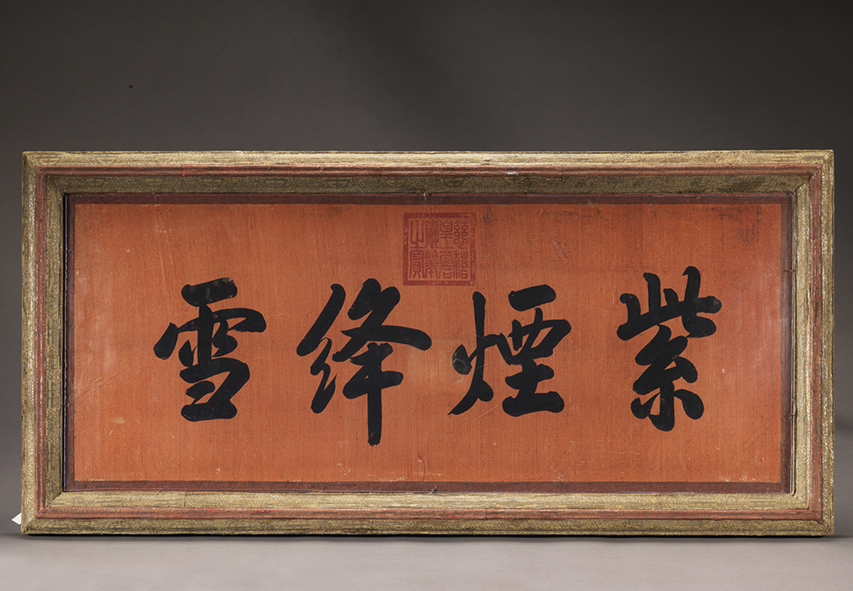 紫煙絳雪
慈禧皇太后御筆之寶